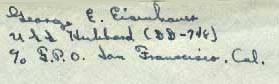 George E. Eisenhauer
U.S.S. Hubbard (DD-748)
% F.P.O. San Francisco, Cal.